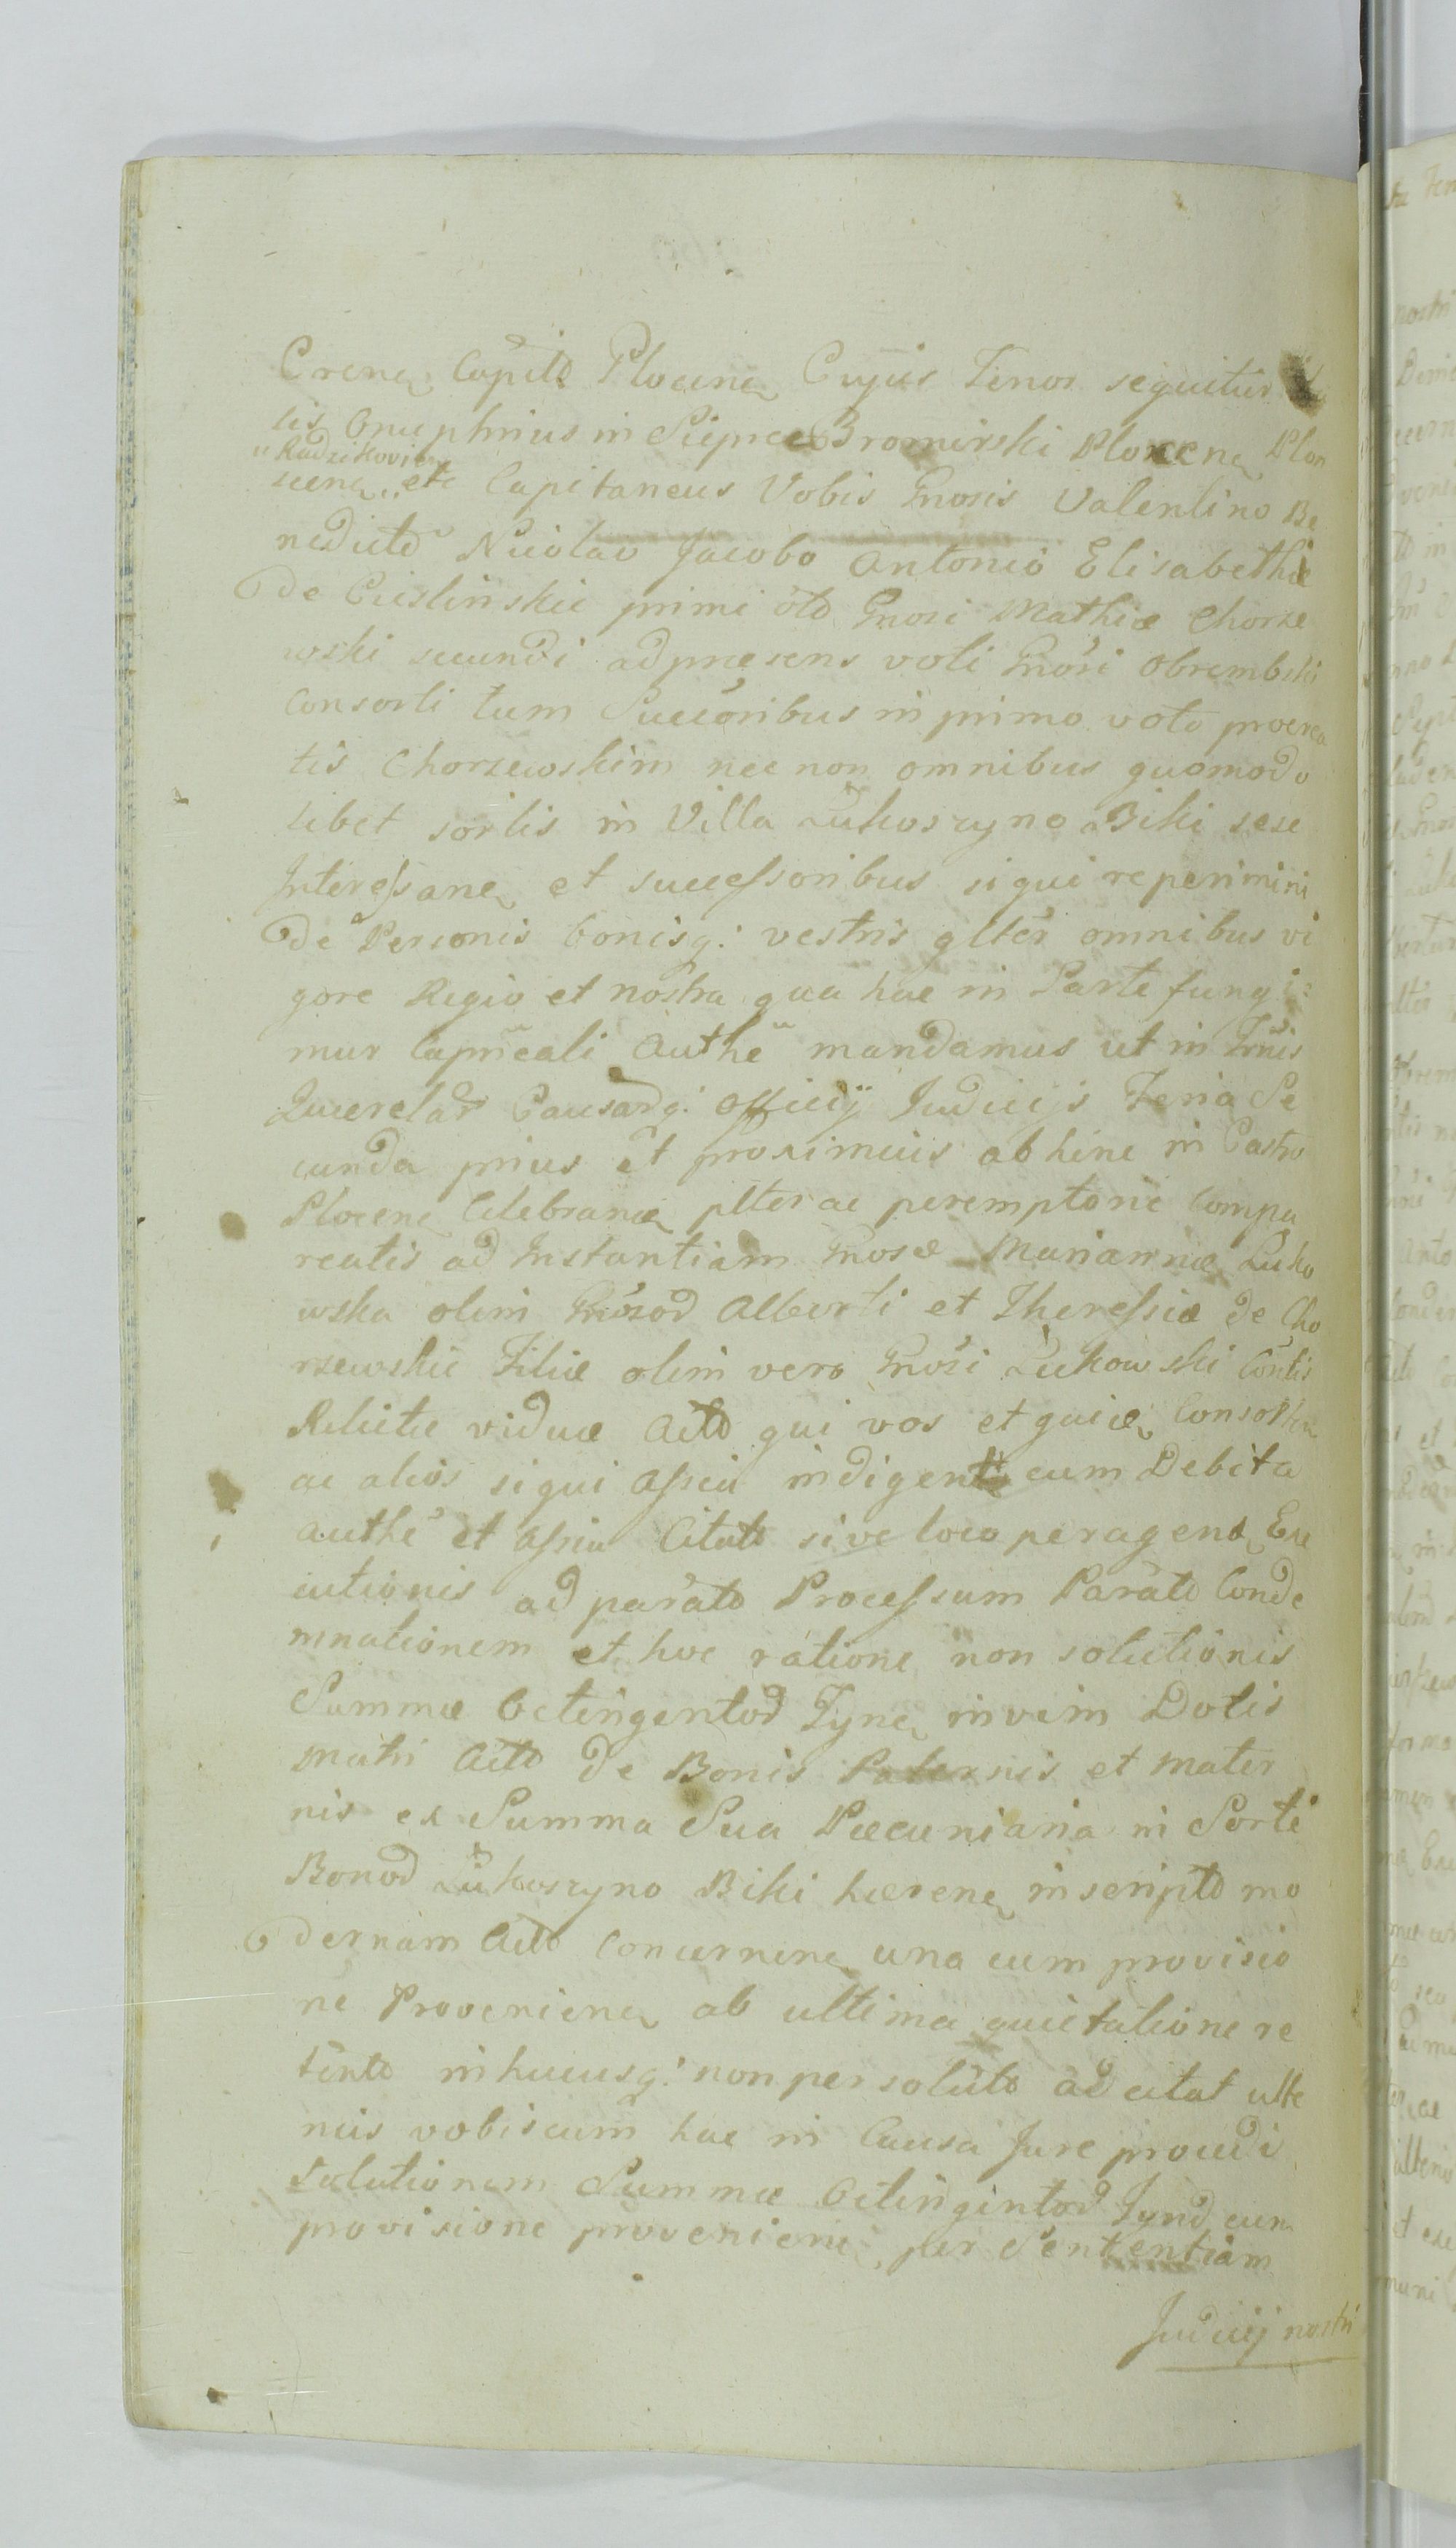 Crene Capito Plocene Cujus Tenor sequitur ta
lis Onuphrius in Sieprce Bromirski Plocene Plon
"Radzikovien
scene,, etc Capitaneus Vobis Gnosis Valentino Be
nedicto Nicolao Jacobo Antonio Elisabethæ
de Cieslinskie primi oto Gnosi Mathiæ Chorze
wski secundi ad præsens voti Gnosi Obrembski
Consorti tum Succoribus in primo voto procrea
tis Chorzewskim nec non omnibus quomodo
libet sortis in Villa Łukoszyno Biki sese
Interessane et successoribus siqui reperimini
de Personis bonisq: vestris qlter omnibus vi
gore Regio et nostra qua hac in Parte fungi:
mur Capneali Authe mandamus ut in Trnis
Querelar Causarq: officij Judicijs Feria Se
cunda prius et proximius abhinc in Castro
Plocene Celebrane plter ac peremptorie Compa
reatis ad Instantiam Gnosæ Mariannæ Łuko
wska olim Gnosod Alberti et Theressiæ de Cho
rzewskie Filiæ olim vero Gnosi Łukowski Contis
Relictæ viduæ Acto qui vos et quiæ Consorten
ac alios siqui assia indigent cum Debita
authe et assia Citato sive loco peragend Exe
cutionis ad parato Processum Parato Conde
mnationem et hoc ratione non solutionis
Summæ Octingentod Tyne in vim Dotis
Matri Acto de Bonis Paternis et Mater
nis ex Summa Sua Pæcuniaria in Sorte
Bonod Łukoszyno Biki hærene inscripto mo
dernam Acto Concernene una cum provisio
ne Proveniene ab ultima quietatione re
tento in hucusq: non persoluto ad citat ulte
rius vobiscum hac in Causa Jure procedi
Solutionem Summæ Octingintod Tynd cum
provisione proveniene per Sententiam
Judicij nostri